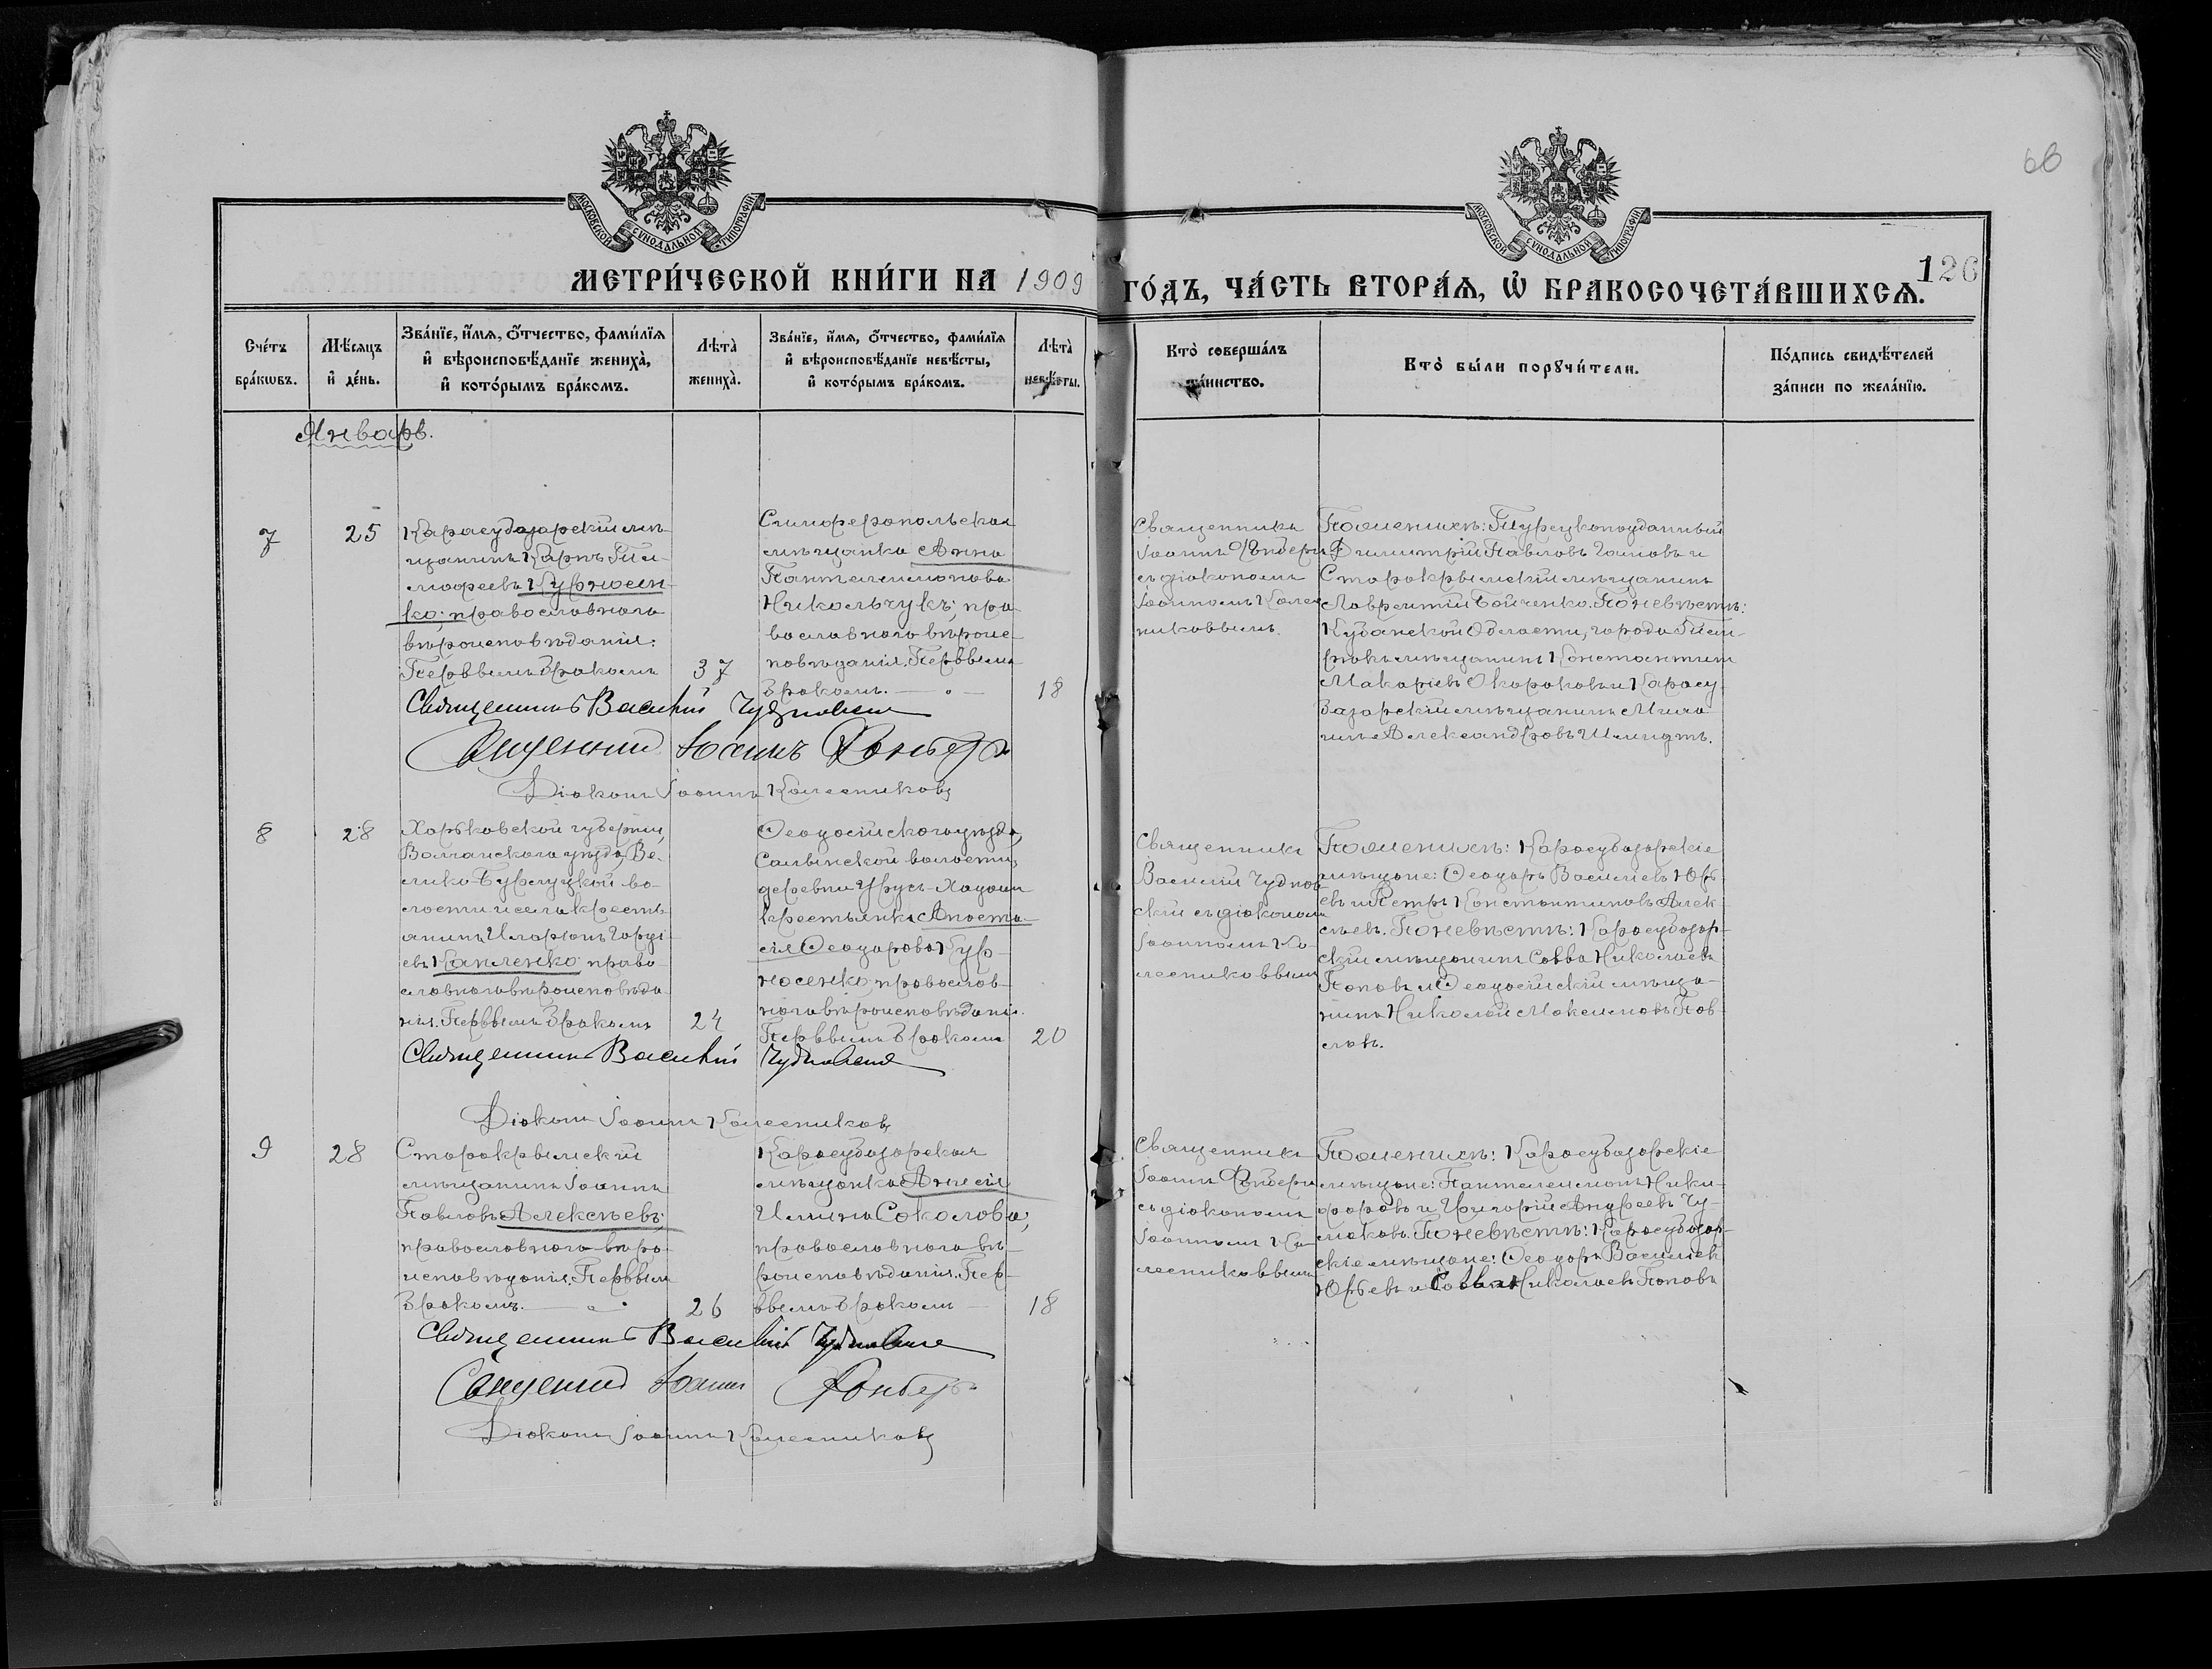 66
МОСКОВСКОЙ СѴНОДАЛЬНОЙ ТИПОГРАФІИ
МОСКОВСКОЙ СѴНОДАЛЬНОЙ ТИПОГРАФІИ
126
МЕТРИ́ЧЕСКОЙ КНИ́ГИ НА 1909 ГО́ДЪ, ЧА́СТЬ ВТОРА́Ѧ, Ѡ҆ БРАКОСОЧЕТА́ВШИХСѦ.
Сче́тъ
бра́кѡвъ.
Мѣ́сяцъ
и҆ де́нь.
Зва́нїе, и҆́мѧ, ѻ҆́тчество, фами́лїѧ
и҆ вѣроисповѣ́данїе жениха̀,
и҆ кото́рымъ бра́комъ.
Лѣта̀
жениха̀.
Зва́нїе, и҆́мѧ, ѻ҆́тчество, фами́лїѧ
и҆ вѣроисповѣ́данїе невѣ́сты,
и҆ кото́рымъ бра́комъ.
Лѣта̀
невѣ́сты.
Кто̀ соверша́лъ
та́инство.
Кто̀ бы́ли порꙋчи́тели.
По́дпись свидѣ́телей
за́писи по жела́нїю.
Январь.
7
25
Карасубазарскій мѣ-
щанинъ Карпъ Ти-
мофеевъ Курносен-
ко; православнаго
вѣроисповѣданія.
Первымъ бракомъ
37
Симферопольская
мѣщанка Анна
Пантелеимонова
Никольчукъ; пра-
вославнаго вѣроис-
повѣданія. Первымъ
бракомъ.
18
Священникъ
Іоаннъ
съ діакономъ
Іоанномъ Колес-
никовымъ.
По женихѣ: Турецкоподданный
Димитрій Павловъ и
Старокрымскій мѣщанинъ
Лаврентій Бойченко. По невѣстѣ:
Кубанской Области, города Тем-
рюкъ мѣщанинъ Константинъ
Макаріевъ Окороковъ и Карасу-
базарскій мѣщанинъ Миха-
илъ Александровъ Шмидтъ.
Священникъ Василій Чудновскій
Священникъ Іоаннъ
Діаконъ Іоаннъ Колесниковъ
8
28
Харьковской губерніи,
Волчанскаго уѣзда, Ве-
лико-Бурлуцкой во-
лости и села кресть-
янинъ Иларіонъ Горді-
евъ Капленко право-
славнаго вѣроисповѣда-
нія. Первымъ бракомъ
24
Ѳеодосійскаго уѣзда,
Салынской волости,
деревни Урусъ-Ходжи
крестьянка Анаста-
сія Ѳеодорова Кур-
носенко православ-
наго вѣроисповѣданія.
Первымъ бракомъ
20
Священникъ
Василій Чуднов-
скій съ діакономъ
Іоанномъ Ко-
лесниковымъ
По женихѣ: Карасубазарскіе
мѣщане: Ѳеодоръ Василіевъ Юрь-
евъ и Петръ Константиновъ Алек-
сѣевъ. По невѣстѣ: Карасубазар-
скій мѣщанинъ Савва Николаевъ
Поповъ и Ѳеодосійскій мѣща-
нинъ Николай Максимовъ Пав-
ловъ.
Священникъ Василій Чудновскій
Діаконъ Іоаннъ Колесниковъ
9
28
Старокрымскій
мѣщанинъ Іоаннъ
Павловъ Алексѣевъ;
православнаго вѣро-
исповѣданія. Первымъ
бракомъ.
26
Карасубазарская
мѣщанка Анисія
Ильина Соколова;
православнаго вѣ-
роисповѣданія. Пер-
вымъ бракомъ
18
Священникъ
Іоаннъ
съ діакономъ
Іоанномъ Ко-
лесниковымъ
По женихѣ: Карасубазарскіе
мѣщане: Пантелеимонъ Ники-
форовъ и Григорій Андреевъ Чу-
маковъ. По невѣстѣ: Карасубазар-
скіе мѣщане: Ѳеодоръ Василіевъ
Юрьевъ и Савва Николаевъ Поповъ
Священникъ Василій Чудновскій
Священникъ Іоаннъ
Діаконъ Іоаннъ Колесниковъ